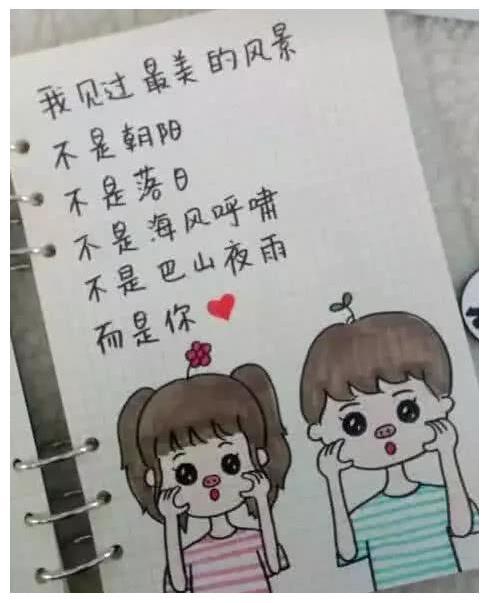 我见过最美的风景
不是朝阳
不是落日
不是海风呼啸
不是巴山夜雨
而是你